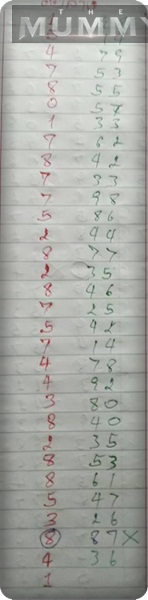 THE
MUMMY
4 79
7 53
8 55
0 57
1 33
7 62
8 42
7 33
7 98
5 86
2 44
8 77
2 35
8 46
7 25
5 92
7 14
4 78
4 92
3 80
8 40
2 35
8 53
8 61
5 47
3 26
8 87 X
4 36
1